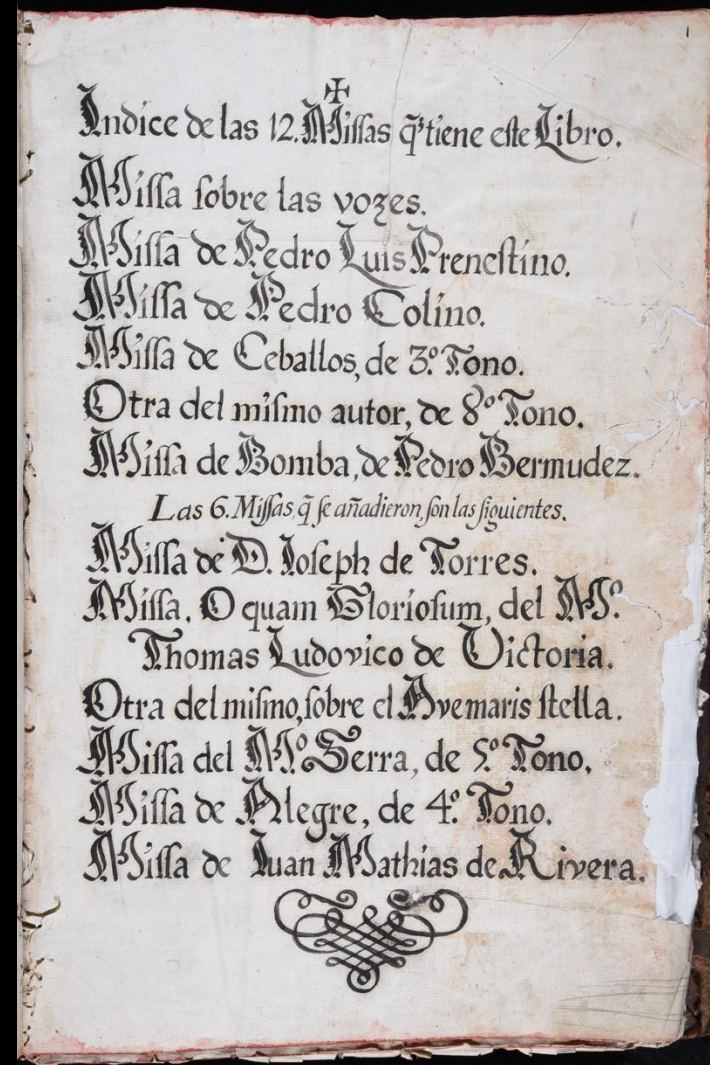 1
✠
Indice de las 12. Missas q̃ tiene este Libro.
Missa sobre las vozes.
Missa de Pedro Luis Prenestino.
Missa de Pedro Colino.
Missa de Ceballos, de 3.º Tono.
Otra del mismo autor, de 8.º Tono.
Missa de Bomba, de Pedro Bermudez.
Las 6. Missas, q̃ se añadieron, son las siguientes.
Missa de D. Ioseph de Torres.
Missa. O quam Gloriosum, del M.º
Thomas Ludovico de Victoria.
Otra del mismo, sobre el Avemaris stella.
Missa del M.º Serra, de 5.º Tono.
Missa de Alegre, de 4.º Tono.
Missa de Iuan Mathias de Rivera.